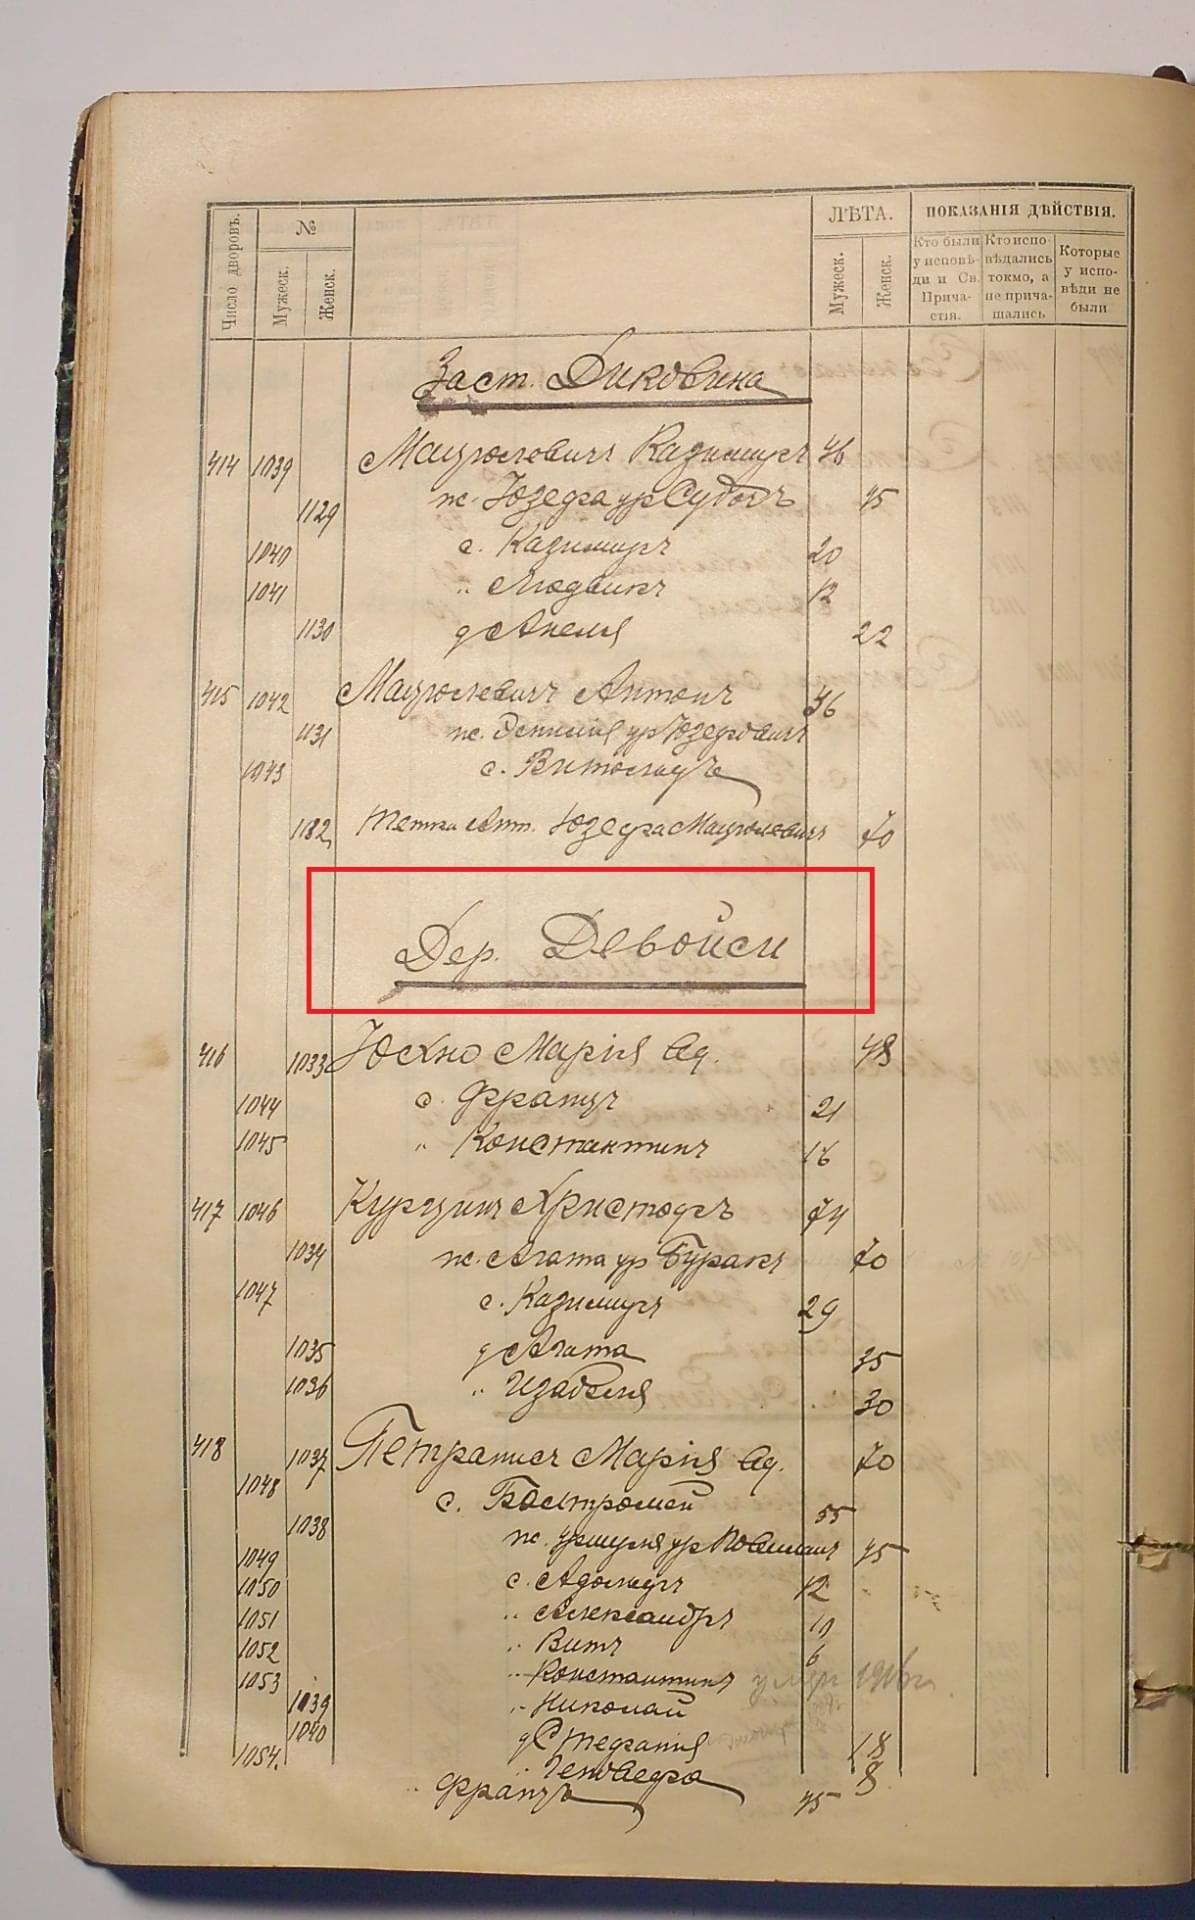 Число дворовъ.
№
Мужеск.
Женск.
ЛѢТА.
Мужеск.
Женск.
ПОКАЗАНІЯ ДѢЙСТВІЯ.
Кто были у исповѣди и Св. Причастія.
Кто исповѣдались токмо, а не причащались
Которые у исповѣди не были
Заст. Диковина
414 1039 Мацюлевичъ Казимиръ 46
1129 ж. Юзефа ур 45
1040 с. Казимиръ 20
1041 " Людвикъ 12
1130 д Анеля 22
415 1042 Мацюлевичъ Антонъ 46
1131 ж. ур Юзефовичъ
1043 с. Витольдъ
1132 тетка Ант. Юзефа Мацюлевичъ 70
Дер. Девойси
416 1033 Юхно Марія вд. 48
1044 с. Францъ 21
1045 " Константинъ 16
417 1046 Христофъ 74
1034 ж. Агата ур Буракъ 70
1047 с. Казимиръ 29
1035 д Агата 35
1036 " Изабеля 30
418 1037 Марія вд. 70
1048 с. 55
1038 ж. Уршуля ур 45
1049 с. Адольфъ 12
1050 " Александръ 10
1051 " Витъ 6
1052 " Константинъ умеръ
1053 " Николай
1039 д Стефанія 18
1040 " Геновефа 8
1054. " Францъ 45